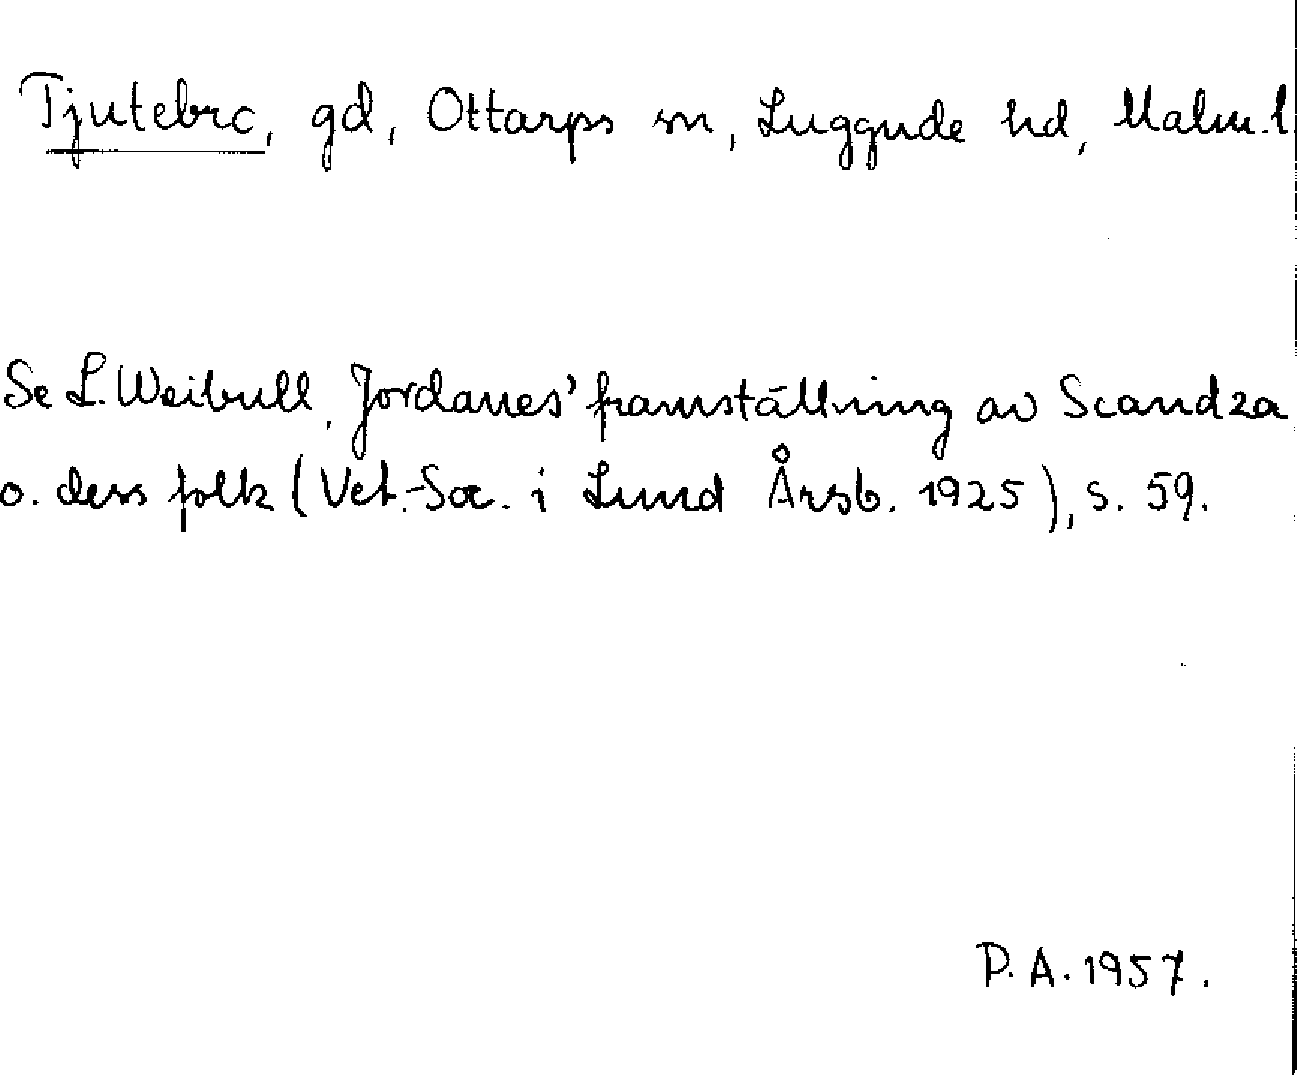 Tjutebro, gd, Ottarps sn, Luggude hd, Malm.l.
Se L. Weibull, Jordanes' framställning av Scandza
o. dess folk (Vet.-Soc. i Lund Årsb. 1925), s. 59.
P.A. 1957.